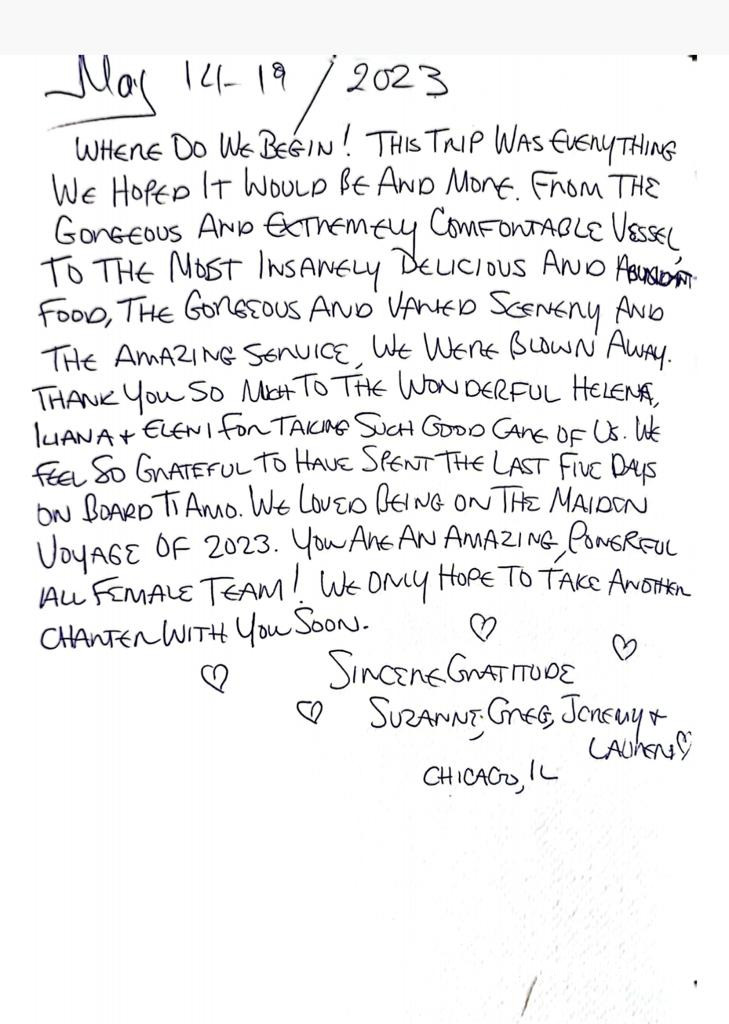 May 14-19/2023
WHERE DO WE BEGIN! THIS TRIP WAS EVERYTHING
WE HOPED IT WOULD BE AND MORE. FROM THE
GORGEOUS AND EXTREMELY COMFORTABLE VESSEL,
TO THE MOST INSANELY DELICIOUS AND ABUNDANT
FOOD, THE GORGEOUS AND VARIED SCENERY AND
THE AMAZING SERVICE, WE WERE BLOWN AWAY.
THANK YOU SO MUCH TO THE WONDERFUL HELENA,
ILIANA + ELENI FOR TAKING SUCH GOOD CARE OF US. WE
FEEL SO GRATEFUL TO HAVE SPENT THE LAST FIVE DAYS
ON BOARD TI AMO. WE LOVED BEING ON THE MAIDEN
VOYAGE OF 2023. YOU ARE AN AMAZING, POWERFUL
ALL FEMALE TEAM! WE ONLY HOPE TO TAKE ANOTHER
CHARTER WITH YOU SOON.
SINCERE GRATITUDE
SUZANNE, GREG, JEREMY +
LAUREN
CHICAGO, IL